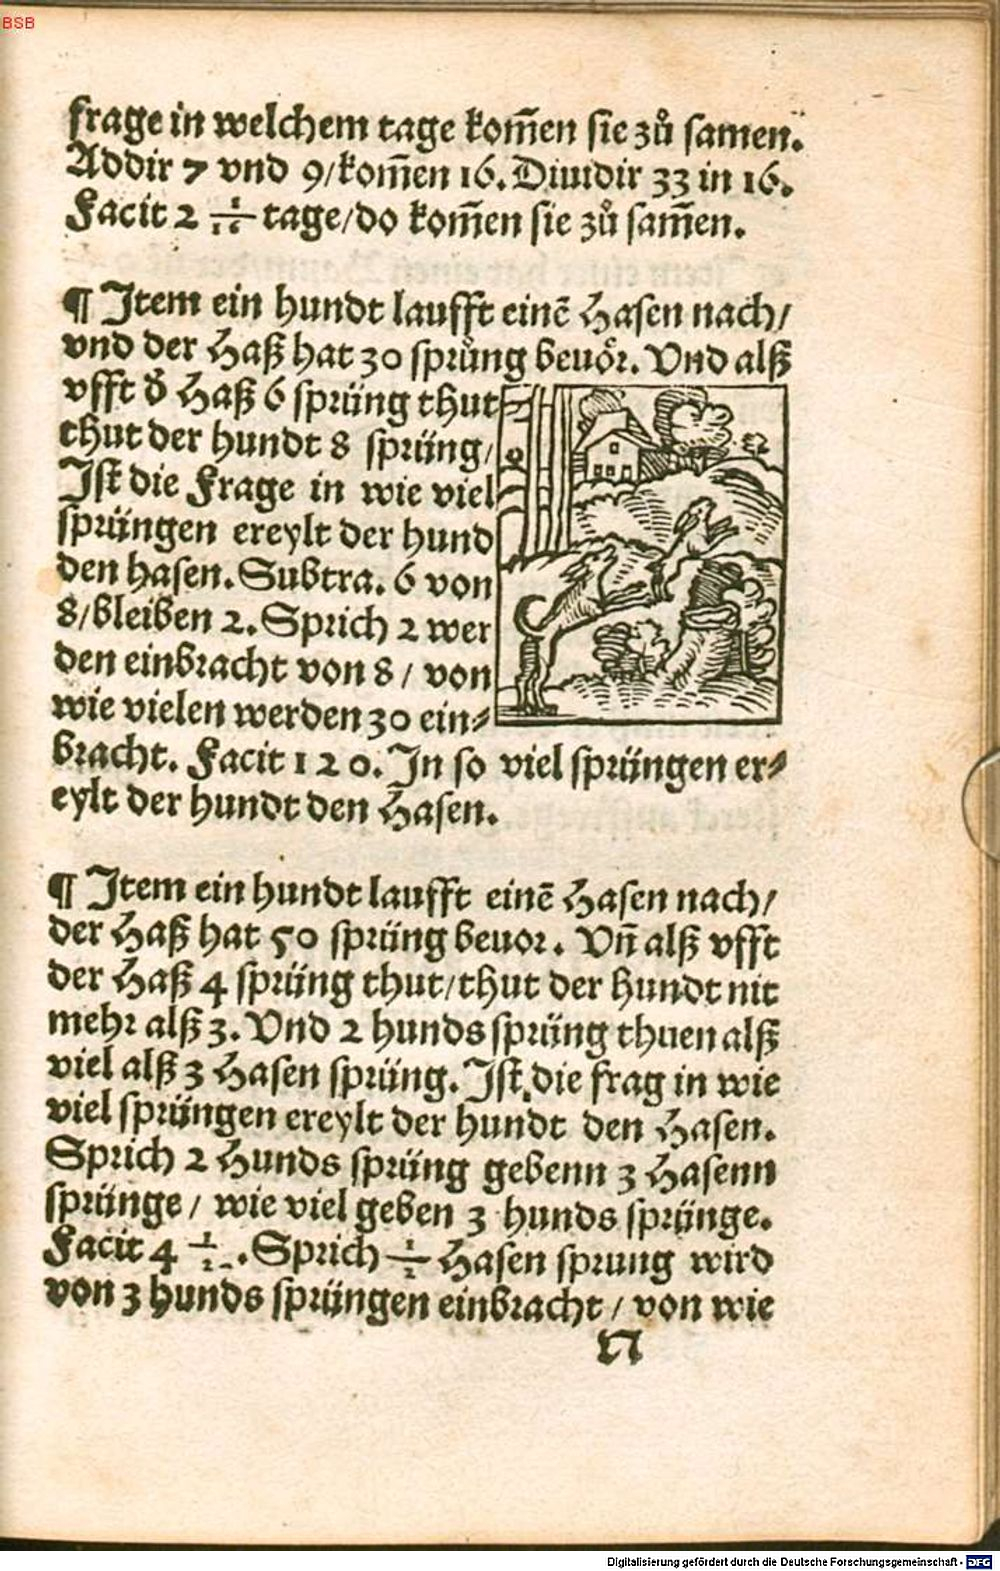 BSB
frage in welchem tage kom̃en sie zů samen.
Addir 7 vnd 9/kom̃en 16. Diuidir 33 in 16.
Facit 2 1/16 tage/do kom̃en sie zů sam̃en.
¶ Item ein hundt laufft einē Hasen nach/
vnd der Haß hat 30 sprüng beuor. Vnd alß
vfft d̕ Haß 6 sprüng thut
thut der hundt 8 sprüng/
Ist die Frage in wie viel
sprüngen ereylt der hund
den hasen. Subtra. 6 von
8/bleiben 2. Sprich 2 wer
den einbracht von 8/ von
wie vielen werden 30 ein⸗
bracht. Facit 120. In so viel sprüngen er⸗
eylt der hundt den Hasen.
¶ Item ein hundt laufft einē Hasen nach/
der Haß hat 50 sprüng beuor. Vñ alß vfft
der Haß 4 sprüng thut/thut der hundt nit
mehr alß 3. Vnd 2 hunds sprüng thuen alß
viel alß 3 Hasen sprüng. Ist die frag in wie
viel sprüngen ereylt der hundt den Hasen.
Sprich 2 Hunds sprüng gebenn 3 Hasenn
sprünge/ wie viel geben 3 hunds sprünge.
Facit 4 1/2. Sprich 1/2 Hasen sprung wird
von 3 hunds sprüngen einbracht/ von wie
N
Digitalisierung gefördert durch die Deutsche Forschungsgemeinschaft - DFG